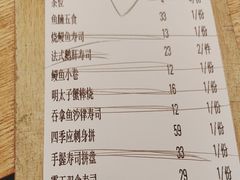 茶位 4 1/份
鱼腩五食 33 1/份
烧鳗鱼寿司 13 1/份
法式鹅肝寿司 23 2/件
鳗鱼小卷 12 1/份
明太子蟹棒烧 16 1/份
吞拿鱼沙律寿司 12 1/份
四季应刺身拼 59 1/份
手握寿司拼盘 33 1/份
29 1/份